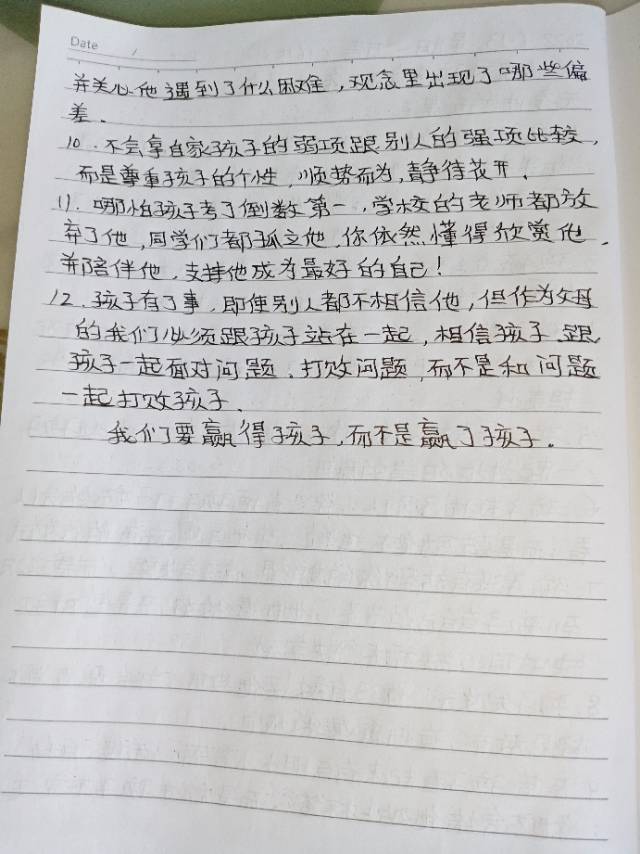 Date /
并关心他遇到了什么困难，观念里出现了哪些偏
差。
10. 不会拿自家孩子的弱项跟别人的强项比较，
而是尊重孩子的个性，顺势而为，静待花开。
11. 哪怕孩子考了倒数第一，学校的老师都放
弃了他，同学们都孤立他，你依然懂得欣赏他，
并陪伴他，支持他成为最好的自己！
12. 孩子有了事，即使别人都不相信他，但作为父母
的我们必须跟孩子站在一起，相信孩子、跟
孩子一起面对问题、打败问题，而不是和问题
一起打败孩子。
我们要赢得孩子，而不是赢了孩子。